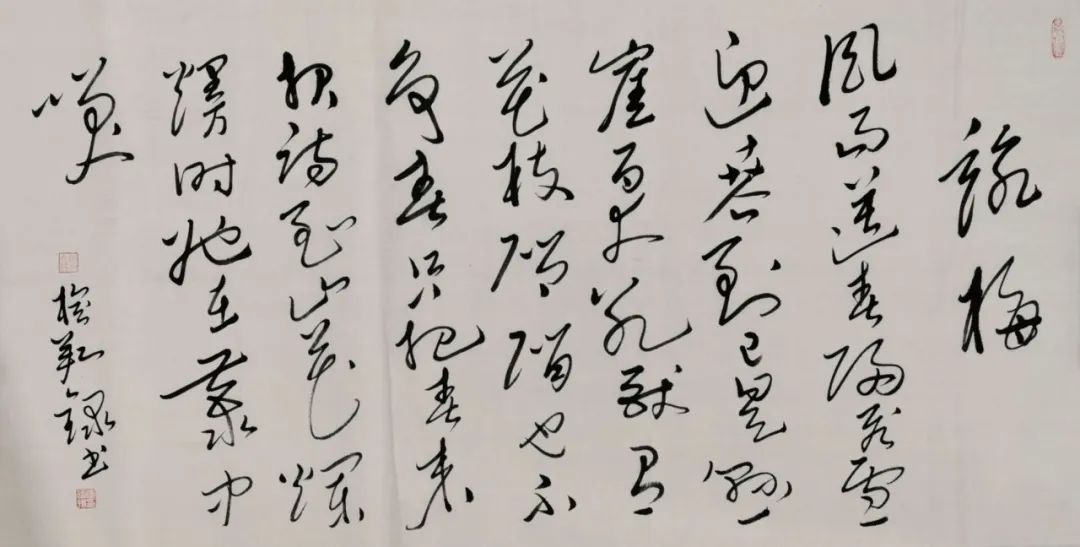 詠梅
风雨送春归飞雪
迎春到已是悬
崖百丈冰猶有
花枝俏俏也不
争春只把春来
报待到山花烂
熳时她在叢中
笑
錄书